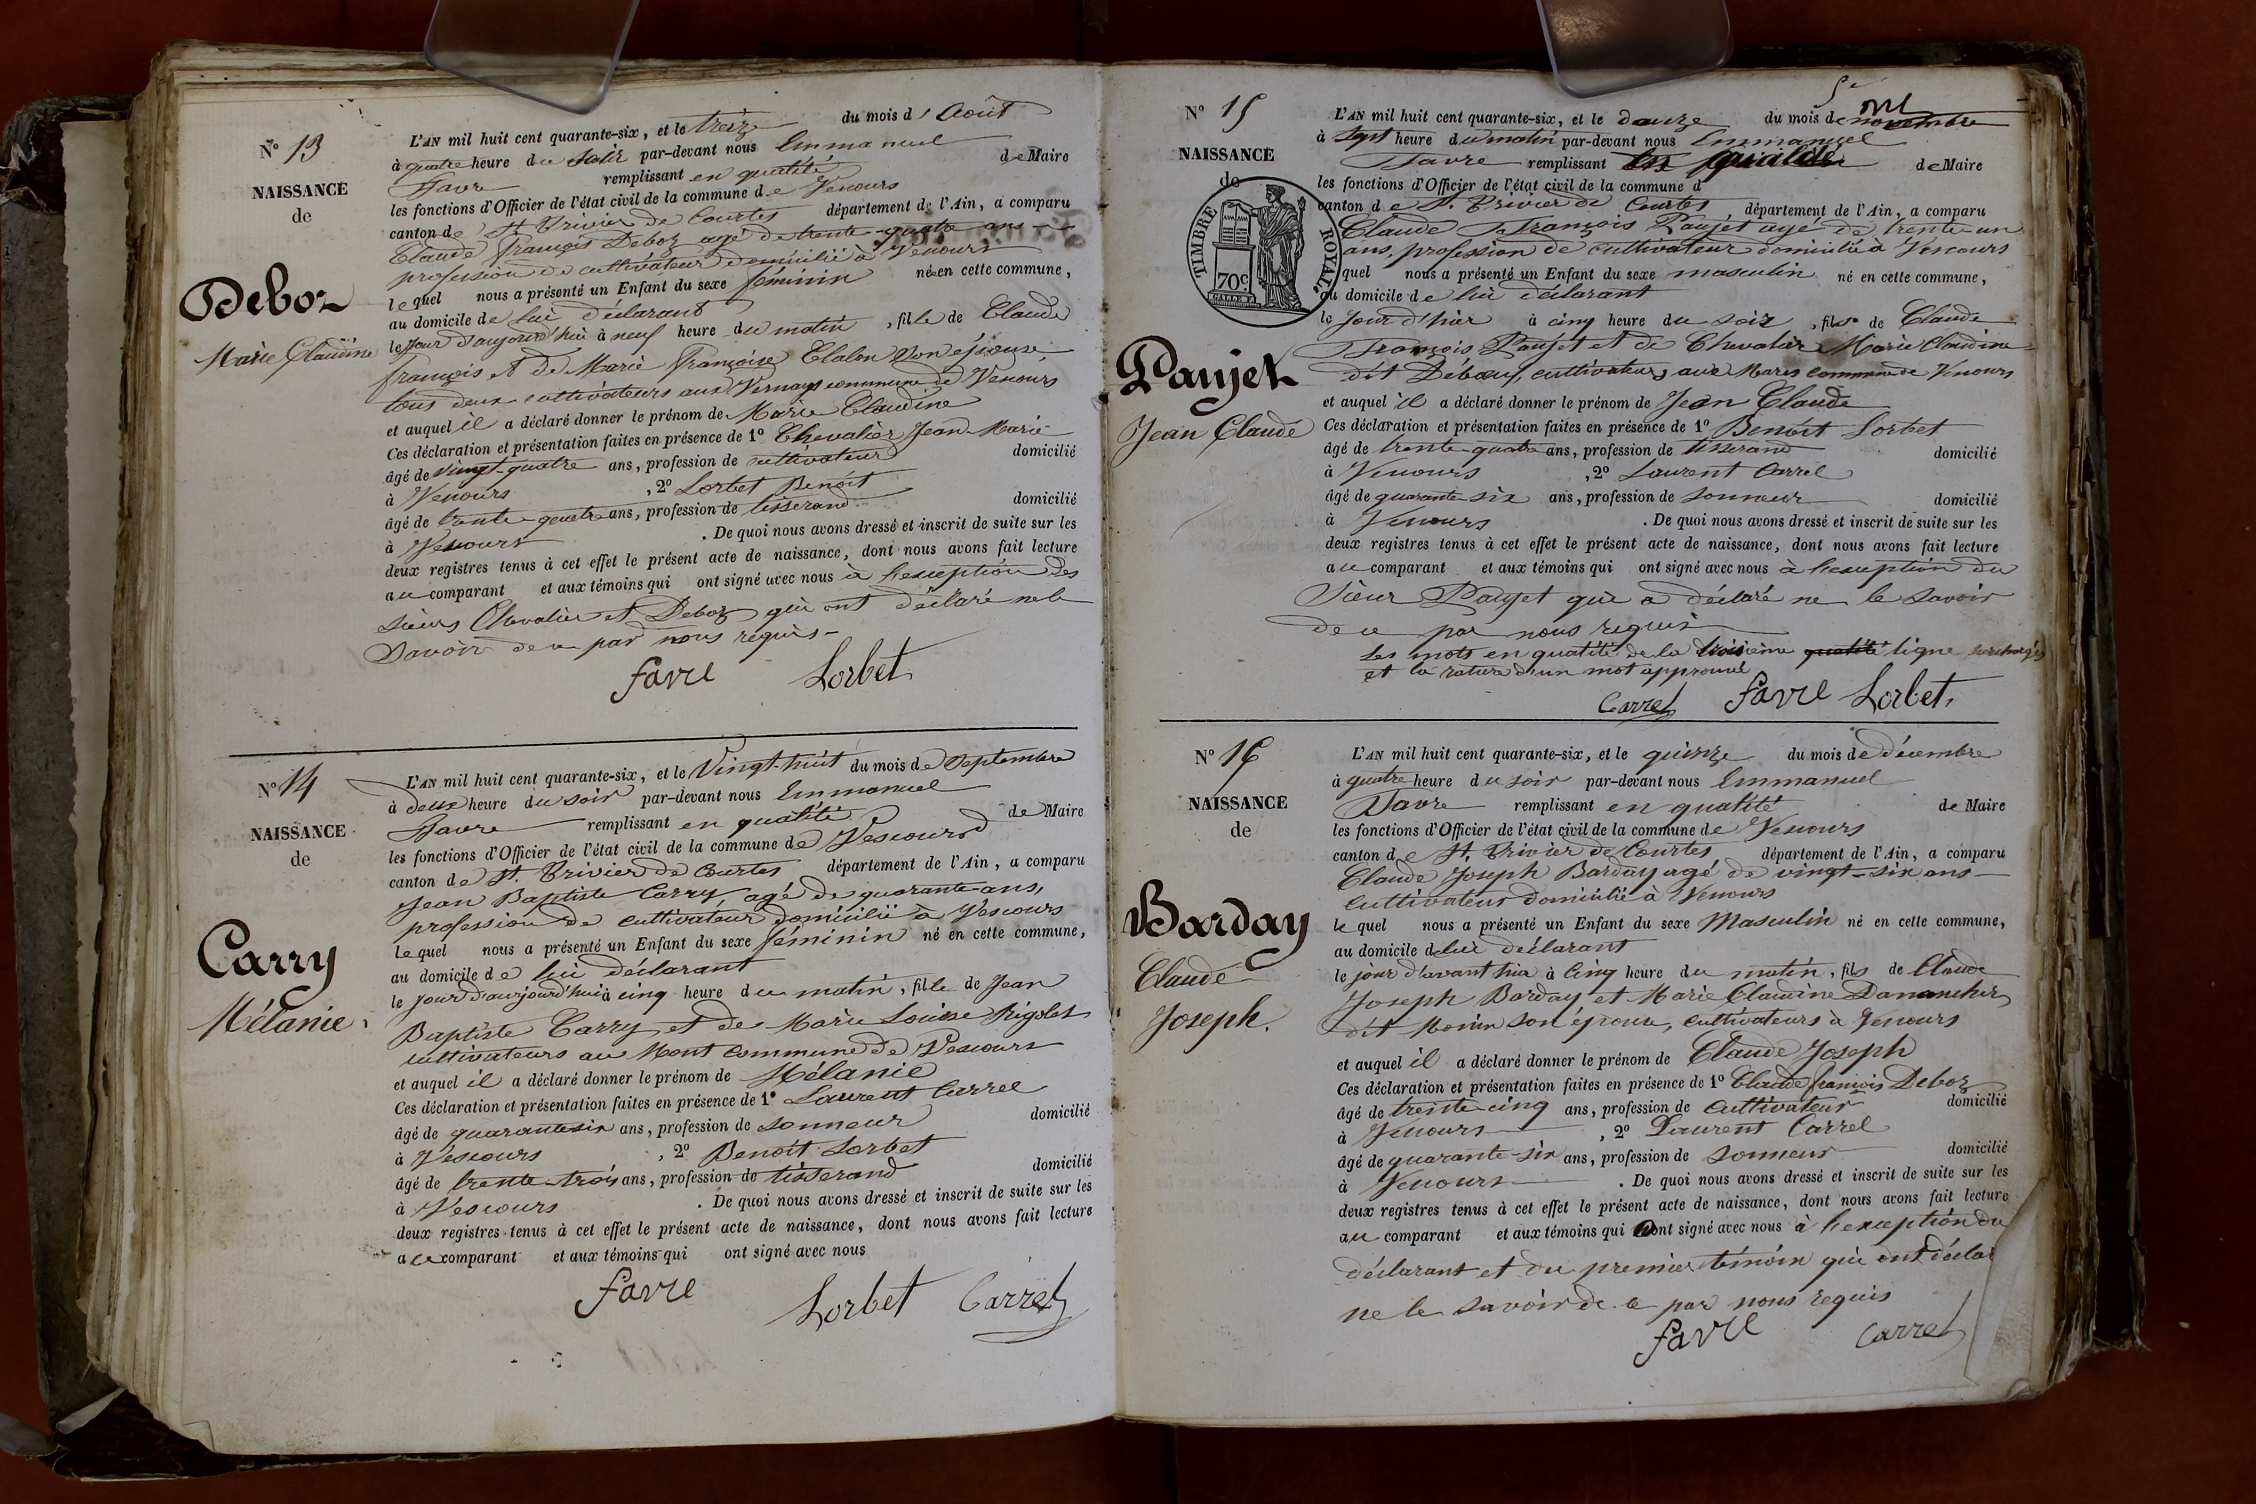 N° 13
NAISSANCE
de
Deboz
Marie Claudine
L'AN mil huit cent quarante-six, et le treize du mois d' Août
à quatre heure du soir par-devant nous Emmanuel
Favre remplissant en qualité de Maire
les fonctions d'Officier de l'état civil de la commune de Vescours
canton de St Trivier de Courtes département de l'Ain, a comparu
Claude françois Deboz agé de trente-quatre ans
profession de cultivateur domicilié à Vescours
lequel nous a présenté un Enfant du sexe féminin né en cette commune,
au domicile de lui déclarant
le jour d'aujourd'hui à neuf heure du matin, fille de Claude
françois et de Marie françoise Clalon son épouse,
tous deux cultivateurs aux Vernays commune de Vescours
et auquel il a déclaré donner le prénom de Marie Claudine
Ces déclaration et présentation faites en présence de 1° Chevalier Jean-Marie
âgé de vingt-quatre ans, profession de cultivateur domicilié
à Vescours, 2° Lorbet Benoit
âgé de trente-quatre ans, profession de tisserand domicilié
à Vescours. De quoi nous avons dressé et inscrit de suite sur les
deux registres tenus à cet effet le présent acte de naissance, dont nous avons fait lecture
au comparant et aux témoins qui ont signé avec nous à l'exception des
sieurs Chevalier et Deboz qui ont déclaré ne le
savoir de ce par nous requis-
favre Lorbet
N° 14
NAISSANCE
de
Carry
Mélanie
L'AN mil huit cent quarante-six, et le Vingt-huit du mois de Septembre
à deux heure du soir par-devant nous Emmanuel
Favre remplissant en qualité de Maire
les fonctions d'Officier de l'état civil de la commune de Vescours
canton de St. Trivier de Courtes département de l'Ain, a comparu
Jean Baptiste Carry agé de quarante ans,
profession de cultivateur domicilié à Vescours
lequel nous a présenté un Enfant du sexe féminin né en cette commune,
au domicile de lui déclarant
le jour d'aujourd'hui à cinq heure du matin, fille de Jean
Baptiste Carry et de Marie Louise Rigolet
cultivateurs au Mont commune de Vescours
et auquel il a déclaré donner le prénom de Mélanie
Ces déclaration et présentation faites en présence de 1° Laurent Carrel
âgé de quarante six ans, profession de sonneur domicilié
à Vescours, 2° Benoit Lorbet
âgé de trente-trois ans, profession de tisserand domicilié
à Vescours. De quoi nous avons dressé et inscrit de suite sur les
deux registres tenus à cet effet le présent acte de naissance, dont nous avons fait lecture
au comparant et aux témoins qui ont signé avec nous
favre Lorbet Carrel
N° 15
NAISSANCE
de
TIMBRE ROYAL
70c.
Paujet
Jean Claude
L'AN mil huit cent quarante-six, et le douze du mois de novembre
à sept heure du matin par-devant nous Emmanuel
Favre remplissant en qualité de Maire
les fonctions d'Officier de l'état civil de la commune d
canton de St. Trivier de Courtes département de l'Ain, a comparu
Claude François Paujet agé de trente-un
ans, profession de cultivateur domicilié à Vescours
quel nous a présenté un Enfant du sexe masculin né en cette commune,
au domicile de lui déclarant
le jour d'hier à cinq heure du soir, fils de Claude
François Paujet et de Chevalier Marie Claudine
dit Débœuf, cultivateurs aux Mares commune de Vescours
et auquel il a déclaré donner le prénom de Jean Claude
Ces déclaration et présentation faites en présence de 1° Benoit Lorbet
âgé de trente-quatre ans, profession de tisserand domicilié
à Vescours, 2° Laurent Carrel
âgé de quarante-six ans, profession de sonneur domicilié
à Vescours. De quoi nous avons dressé et inscrit de suite sur les
deux registres tenus à cet effet le présent acte de naissance, dont nous avons fait lecture
au comparant et aux témoins qui ont signé avec nous à l'exception du
Sieur Paujet qui a déclaré ne le savoir
de ce par nous requis
Les mots en qualité de la troisième qualité ligne surchargés
et la rature d'un mot approuvé
Carrel favre Lorbet
N° 16
NAISSANCE
de
Barday
Claude
Joseph.
L'AN mil huit cent quarante-six, et le quinze du mois de décembre
à quatre heure du soir par-devant nous Emmanuel
Favre remplissant en qualité de Maire
les fonctions d'Officier de l'état civil de la commune de Vescours
canton de St. Trivier de Courtes département de l'Ain, a comparu
Claude Joseph Barday agé de vingt-six ans
cultivateur domicilié à Vescours
le quel nous a présenté un Enfant du sexe Masculin né en cette commune,
au domicile de lui déclarant
le jour d'avant hier à cinq heure du matin, fils de Claude
Joseph Barday et Marie Claudine Danancher
dit Monin son épouse, cultivateurs à Vescours
et auquel il a déclaré donner le prénom de Claude Joseph
Ces déclaration et présentation faites en présence de 1° Claude françois Deboz
âgé de trente-cinq ans, profession de cultivateur domicilié
à Vescours, 2° Laurent Carrel
âgé de quarante-six ans, profession de sonneur domicilié
à Vescours. De quoi nous avons dressé et inscrit de suite sur les
deux registres tenus à cet effet le présent acte de naissance, dont nous avons fait lecture
au comparant et aux témoins qui ont signé avec nous à l'exception du
déclarant et du premier témoin qui ont déclar
ne le savoir de ce par nous requis
favre Carrel